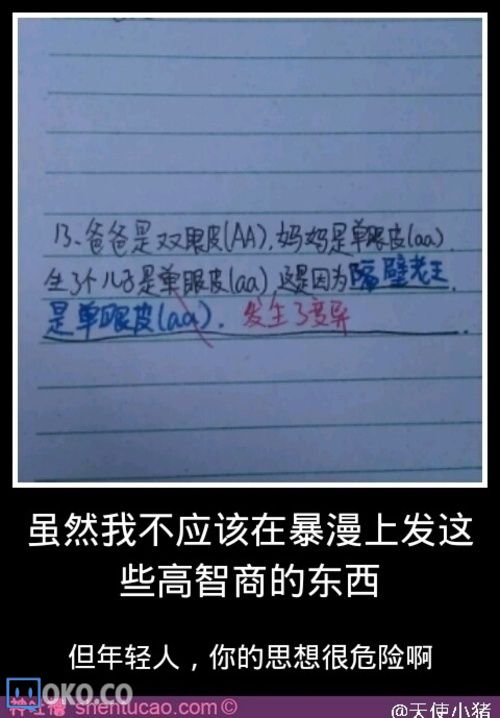 13、爸爸是双眼皮(AA),妈妈是单眼皮(aa),
生了个儿子是单眼皮(aa),这是因为隔壁老王
是单眼皮(aa). 发生了变异.
虽然我不应该在暴漫上发这
些高智商的东西
但年轻人，你的思想很危险啊
MOKO.CO
shentucao.com©
@天使小猪